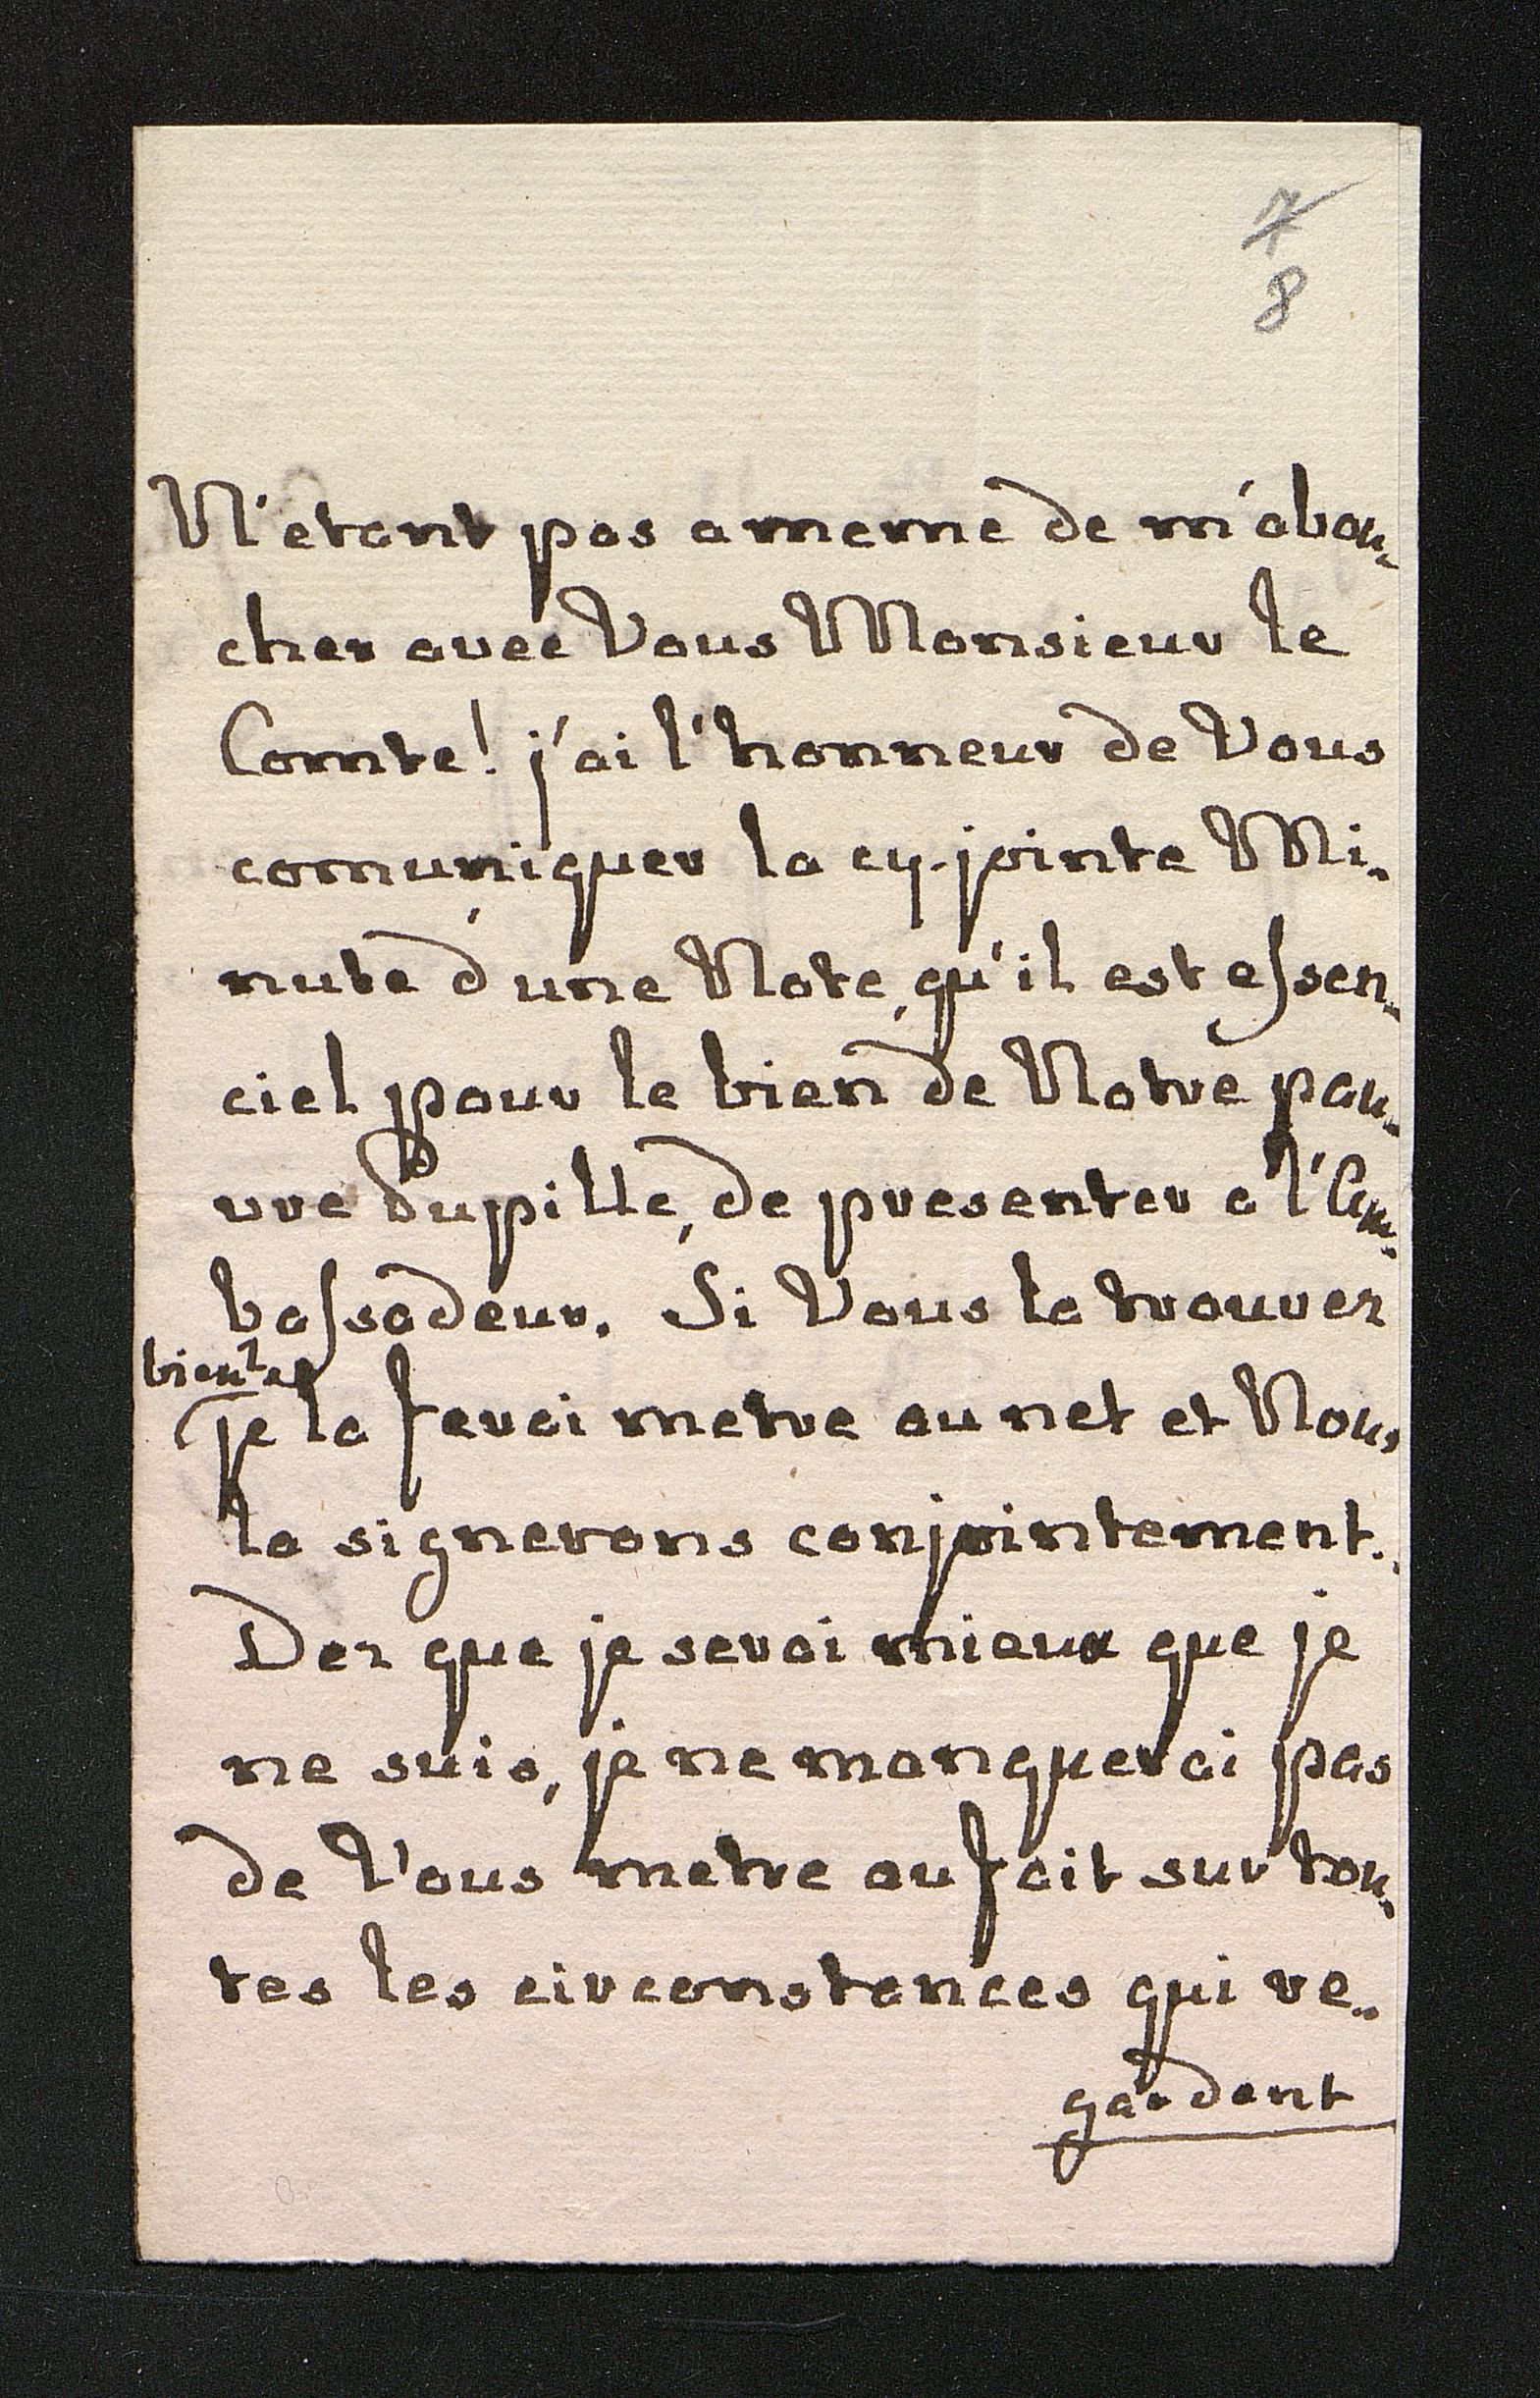 7
8
N'etant pas a meme de m'abou-
cher avec Vous Monsieur le
Comte! j'ai l'honneur de Vous
comuniquer la cy-jointe Mi-
nute d'une Note, qu'il est essen-
ciel pour le bien de Notre pau-
vre Pupille, de presenter a l'Am-
bassadeur. Si Vous la trouvez
bien
je la ferai metre au net et Nous
la signerons conjointement.
Dez que je serai mieux que je
ne suis, je ne manquerai pas
de Vous metre au fait sur tou-
tes les circonstances qui re-
gardent